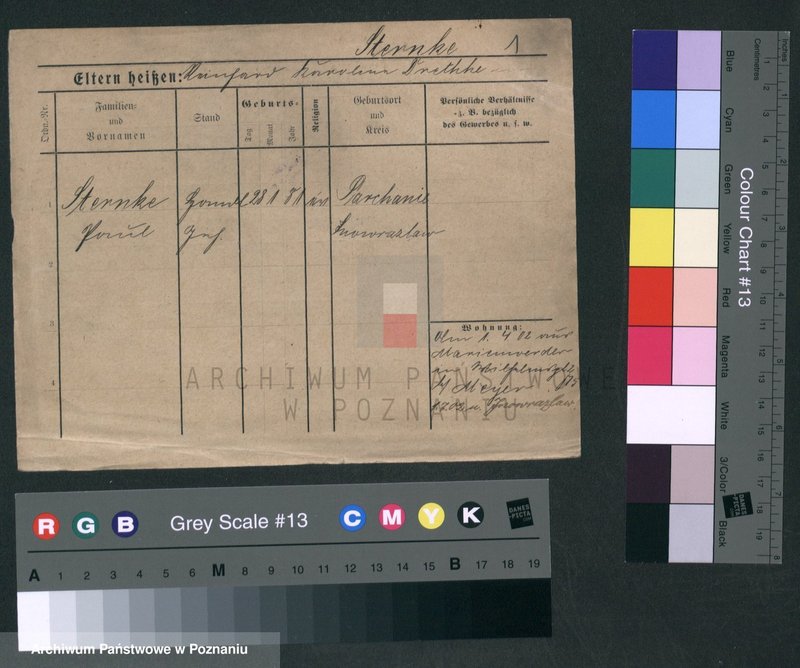 Sternke 1
Eltern heißen: Reinhard Karolina Drethke
Ordn.-Nr.
Familien-
und
Vornamen
Stand
Geburts-
Tag
Monat
Jahr
Religion
Geburtsort
und
Kreis
Persönliche Verhältnisse
z. B. bezüglich
des Gewerbes u. s. w.
1 Sternke 28 1 81 ev Parchanie
Paul Inowrazlaw
2
3
4
Wohnung:
1. 4 02 aus
Marienwerder
Meyer
Inowrazlaw
ARCHIWUM PAŃSTWOWE
W POZNANIU
R G B Grey Scale #13 C M Y K
DANES
PICTA
.COM
A 1 2 3 4 5 6 M 8 9 10 11 12 13 14 15 B 17 18 19
Archiwum Państwowe w Poznaniu
Colour Chart #13
Blue
Cyan
Green
Yellow
Red
Magenta
White
3/Color
Black
Centimetres
1 2 3 4 5 6 7 8 9 10 11 12 13 14 15 16 17 18 19
Inches
1 2 3 4 5 6 7 8
DANES
PICTA
.COM